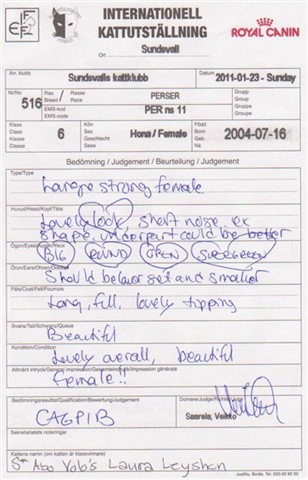 INTERNATIONELL
KATTUTSTÄLLNING
Sundsvall
FIFe
ROYAL CANIN
Arr. klubb
Sundsvalls kattklubb
Datum
2011-01-23 - Sunday
Nr/No
516
Ras / Rasse
Breed / Race
PERSER
EMS-kod
EMS-code
PER ns 11
Grupp
Group
Gruppe
Klass
Class
Klasse
6
Kön
Sex
Geschlecht
Sexe
Hona / Female
Född
Born
Geb.
Né
2004-07-16
Bedömning / Judgement / Beurteilung / Jugement
Type/Type
Large strong female
Huvud/Head/Kopf/Tête
Lovely look, short noise, ex
shape. underpart could be better
Ögon/Eyes/Augen/Yeux
BIG ROUND OPEN SUPERGREEN
Öron/Ears/Ohren/Oreilles
Should be lower set and smaller
Päls/Coat/Fell/Fourrure
Long, full, lovely tipping
Svans/Tail/Schwanz/Queue
Beautiful
Kondition/Condition
Lovely overall, beautiful
Allmänt intryck/General impression/Gesamteindruck/Impression générale
Female!!
Bedömningsresultat/Qualification/Bewertung/Jugement
CAGPIB
Domare/Judge/Richter/Juge
Saarela, Veikko
Sekretariatets noteringar
Kattens namn (om katten är klassvinnare)
S* Abo Vob's Laura Leyshon